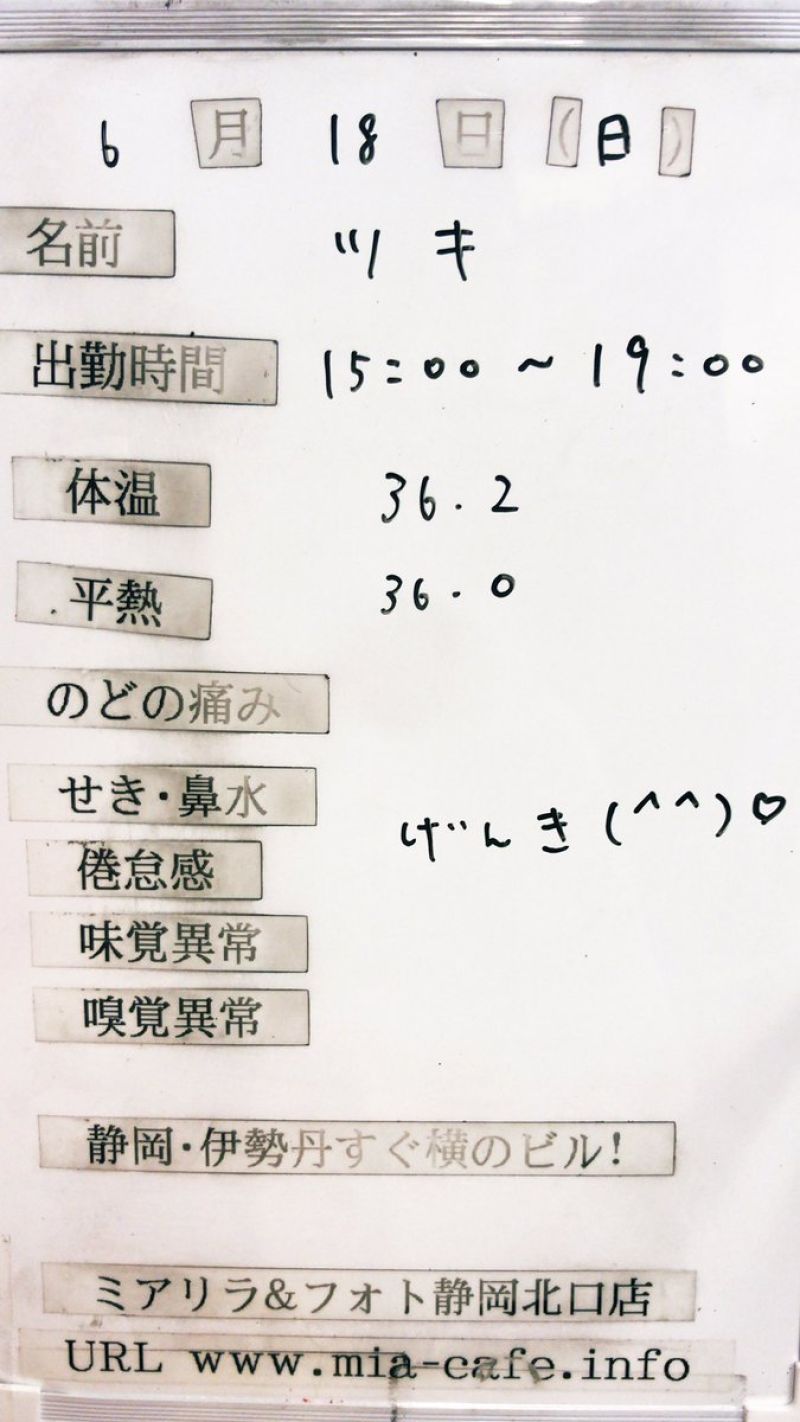 6 月 18 日 (日)
名前 ツキ
出勤時間 15:00 ~ 19:00
体温 36.2
平熱 36.0
のどの痛み
せき・鼻水
げんき(^^)♡
倦怠感
味覚異常
嗅覚異常
静岡・伊勢丹すぐ横のビル!
ミアリラ&フォト静岡北口店
URL www.mia-cafe.info